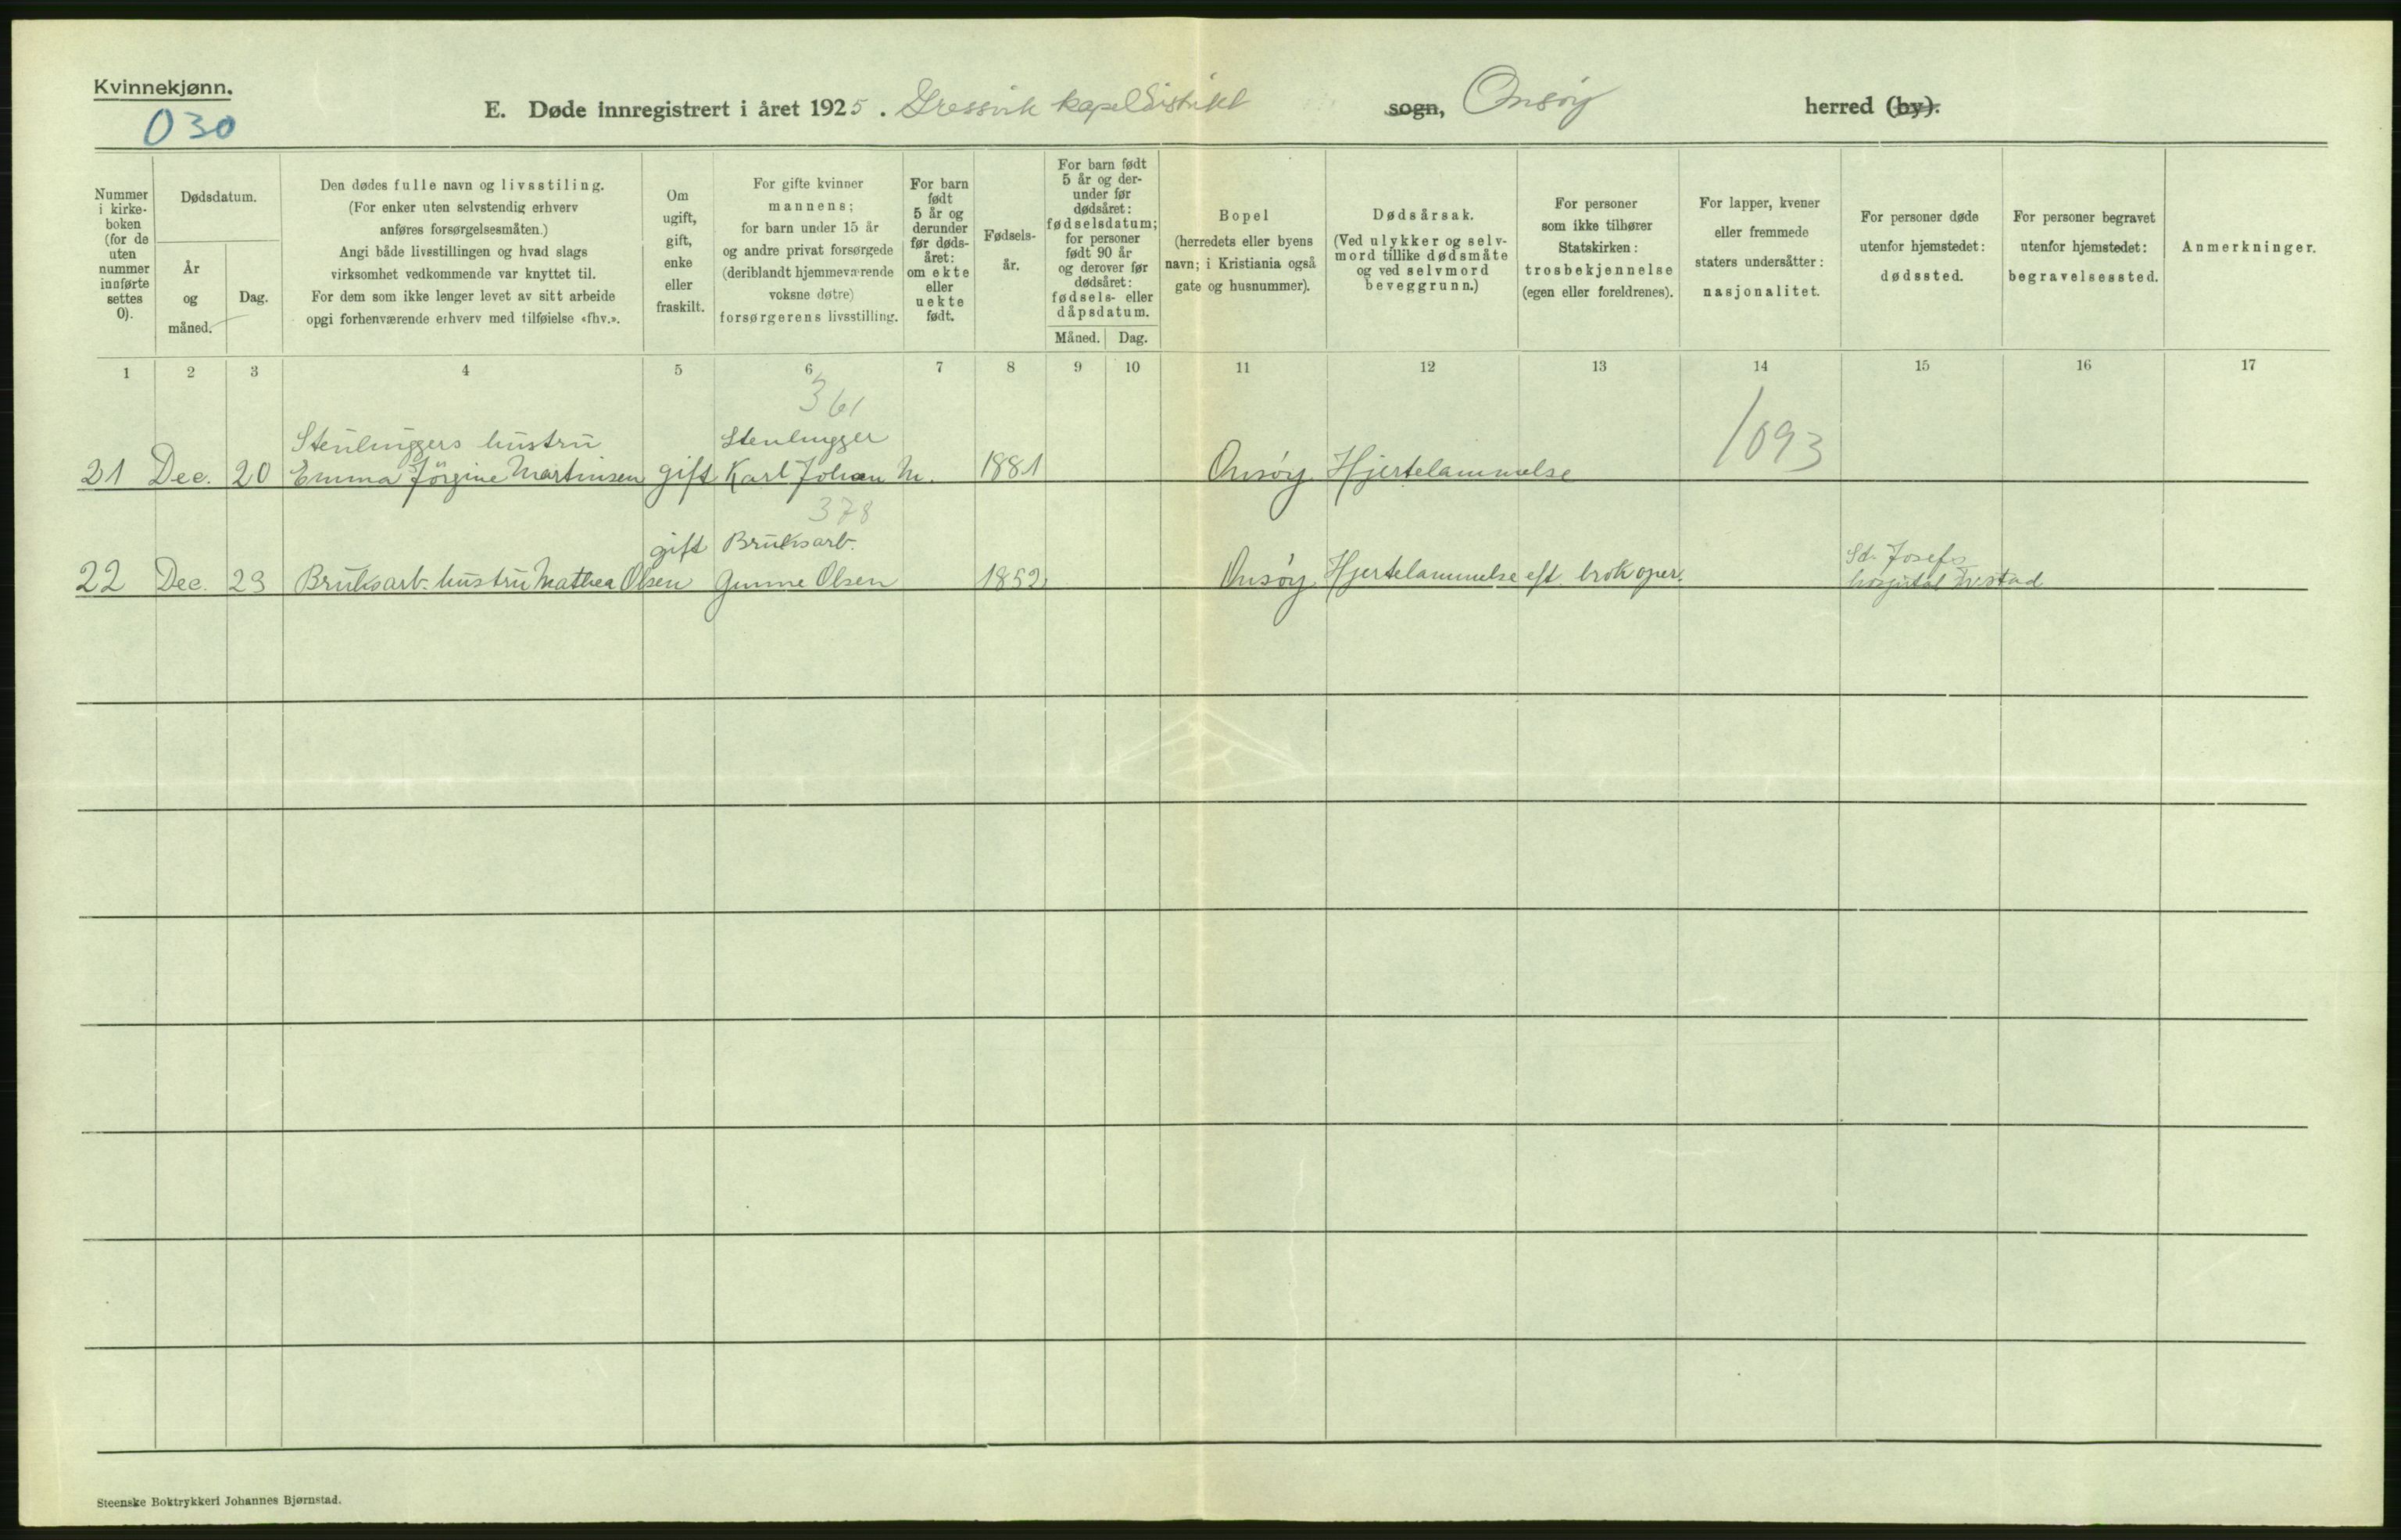 Kvinnekjønn.
030
E. Døde innregistrert i året 1925. Gressvik kapeldistrikt sogn, Onsøy herred (by).
Nummer i kirke- boken (for de uten nummer innførte settes 0).
Dødsdatum.
År og måned.
Dag.
Den dødes fulle navn og livsstiling.
(For enker uten selvstendig erhverv
anføres forsørgelsesmåten.)
Angi både livsstillingen og hvad slags
virksomhet vedkommende var knyttet til.
For dem som ikke lenger levet av sitt arbeide
opgi forhenværende erhverv med tilføielse «fhv.».
Om
ugift,
gift,
enke
eller
fraskilt.
For gifte kvinner
mannens;
for barn under 15 år
og andre privat forsørgede
(deriblandt hjemmeværende
voksne døtre)
forsørgerens livsstilling.
For barn
født
5 år og
derunder
før døds-
året:
om ekte
eller
uekte
født.
Fødsels-
år.
For barn født
5 år og der-
under før
dødsåret:
fødselsdatum;
for personer
født 90 år
og derover før
dødsåret:
fødsels- eller
dåpsdatum.
Måned.
Dag.
Bopel
(herredets eller byens
navn; i Kristiania også
gate og husnummer).
Dødsårsak.
(Ved ulykker og selv-
mord tillike dødsmåte
og ved selvmord
beveggrunn.)
For personer
som ikke tilhører
Statskirken:
trosbekjennelse
(egen eller foreldrenes).
For lapper, kvener
eller fremmede
staters undersåtter:
nasjonalitet.
For personer døde
utenfor hjemstedet:
dødssted.
For personer begravet
utenfor hjemstedet:
begravelsessted.
Anmerkninger.
1 2 3 4 5 6 7 8 9 10 11 12 13 14 15 16 17
361
1093
Stenhuggers hustru Stenhugger
21 Dec. 20 Emma Jörgine Martinsen gift Karl Johan M. 1881 Onsöy Hjertelammelse
378
gift Bruksarb. St. Josefs
22 Dec. 23 Bruksarb. hustru Mathea Olsen Gunne Olsen 1852 Onsöy Hjertelammelse eft. brokoper. hospital Frestad
Steenske Boktrykkeri Johannes Bjørnstad.